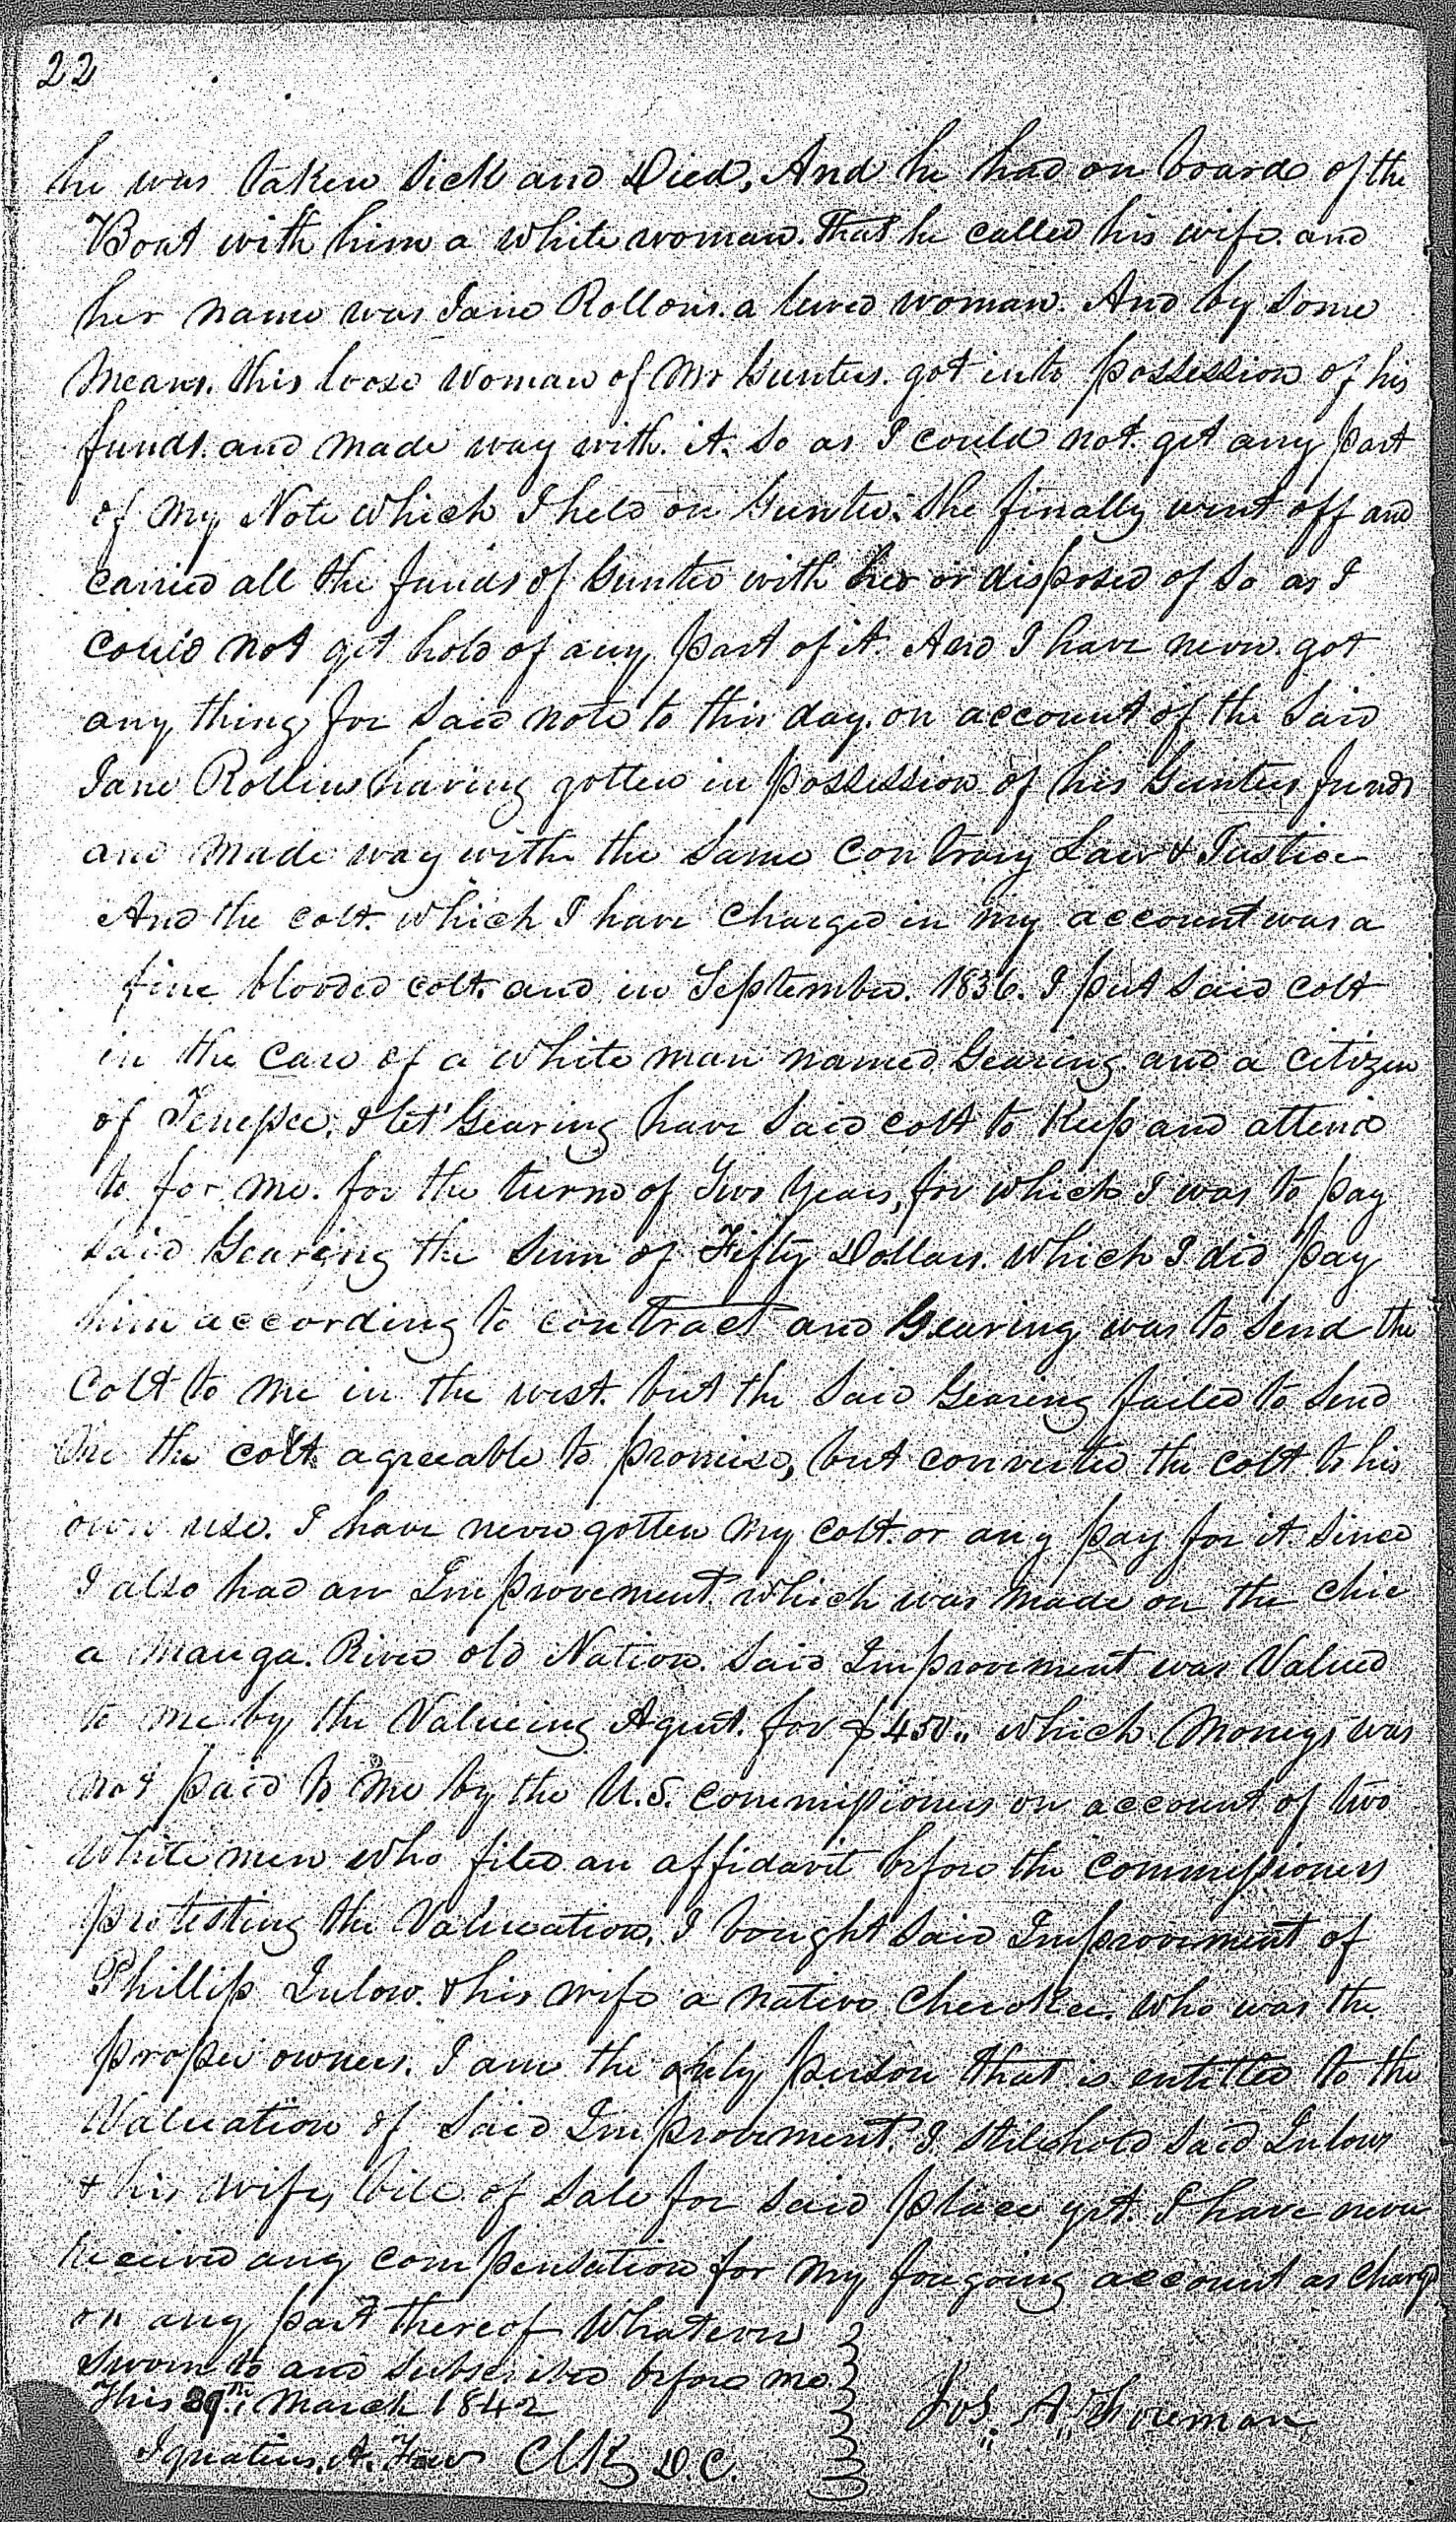 22
he was taken sick and Died, And he had on board of the
Boat with him a white woman. That he called his wife. and
her name was Jane Rollons. a lewd woman. And by some
means. this loose woman of Mr Gunters. got into possession of his
funds. and made way with. it. so as I could not get any part
of my Note which I held on Gunter. She finally went off and
carried all the funds of Gunter with her or disposed of so as I
could not get hold of any part of it. And I have never got
any thing for said note to this day. on account of the said
Jane Rollins having gotten in possession of his Gunters funds
and made way with the same contrary Law & Justice
And the colt. which I have charged in my account was a
fine blooded colt. and in September. 1836. I put said colt
in the care of a white man named Gearing and a citizen
of Tenessee. I let Gearing have said colt to keep and attend
to for me. for the turm of Two years, for which I was to pay
said Gearing the sum of Fifty Dollars. which I did pay
him according to contract and Gearing was to send the
colt to me in the west. but the said Gearing failed to send
me the colt agreeable to promise, but converted the colt to his
own use. I have never gotten my colt. or any pay for it since
I also had an Improvement which was made on the chic
a manga. River old Nation. Said Improvement was valued
to me by the Valueing Agent. for $450.. which moneys was
not paid to me by the U.S. commissioners on account of two
white men who filed an affidavit before the commissioners
protesting the Valueation. I bought said Improvement of
Phillip Inlow. & his wife a native Cherokee. who was the
proper owners. I am the only person that is entitled to the
Valuation of said Improvement. I still hold said Inlows
& his wifes bill of sale for said place yet. I have never
received any compensation for my forgoing account as charg
or any part thereof whatever
Sworn to and subscribed before me
This 29th March 1842
Jos. A. Foreman
Ignatius. A. Few Clk D.C.